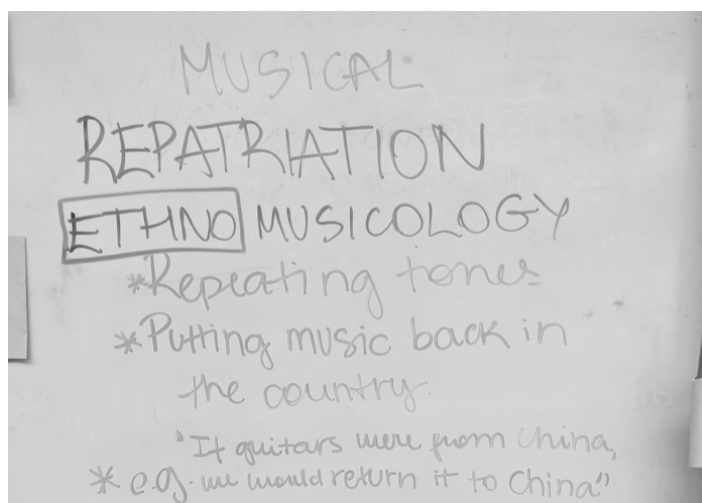 MUSICAL
REPATRIATION
ETHNO MUSICOLOGY
*Repeating tones
*Putting music back in
the country.
"If guitars were from China,
* e.g. we would return it to China"